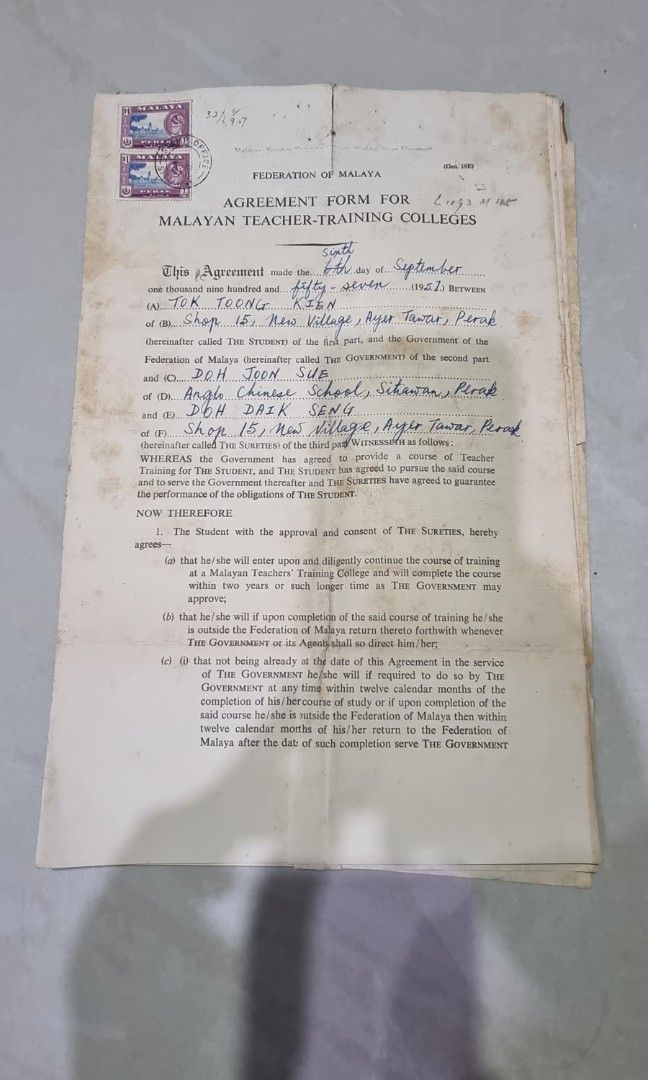 $1 MALAYA
PERAK
$1 MALAYA
PERAK
OFFICE
(Gen. 198)
FEDERATION OF MALAYA
AGREEMENT FORM FOR
MALAYAN TEACHER-TRAINING COLLEGES
This Agreement made the sixth 6th day of September
one thousand nine hundred and fifty-seven (1957) BETWEEN
(A) TOK TOONG KIEN
of (B) Shop 15, New Village, Ayer Tawar, Perak
(hereinafter called THE STUDENT) of the first part, and the Government of the
Federation of Malaya (hereinafter called THE GOVERNMENT) of the second part
and (C) DOH JOON SUE
of (D) Anglo Chinese School, Sitiawan, Perak
and (E) DOH DAIK SENG
of (F) Shop 15, New Village, Ayer Tawar, Perak
(hereinafter called THE SURETIES) of the third part WITNESSETH as follows:
WHEREAS the Government has agreed to provide a course of Teacher
Training for THE STUDENT, and THE STUDENT has agreed to pursue the said course
and to serve the Government thereafter and THE SURETIES have agreed to guarantee
the performance of the obligations of THE STUDENT.
NOW THEREFORE
1. The Student with the approval and consent of THE SURETIES, hereby
agrees—
(a) that he/she will enter upon and diligently continue the course of training
at a Malayan Teachers' Training College and will complete the course
within two years or such longer time as THE GOVERNMENT may
approve;
(b) that he/she will if upon completion of the said course of training he/she
is outside the Federation of Malaya return thereto forthwith whenever
THE GOVERNMENT or its Agents shall so direct him/her;
(c) (i) that not being already at the date of this Agreement in the service
of THE GOVERNMENT he/she will if required to do so by THE
GOVERNMENT at any time within twelve calendar months of the
completion of his/her course of study or if upon completion of the
said course he/she is outside the Federation of Malaya then within
twelve calendar months of his/her return to the Federation of
Malaya after the date of such completion serve THE GOVERNMENT